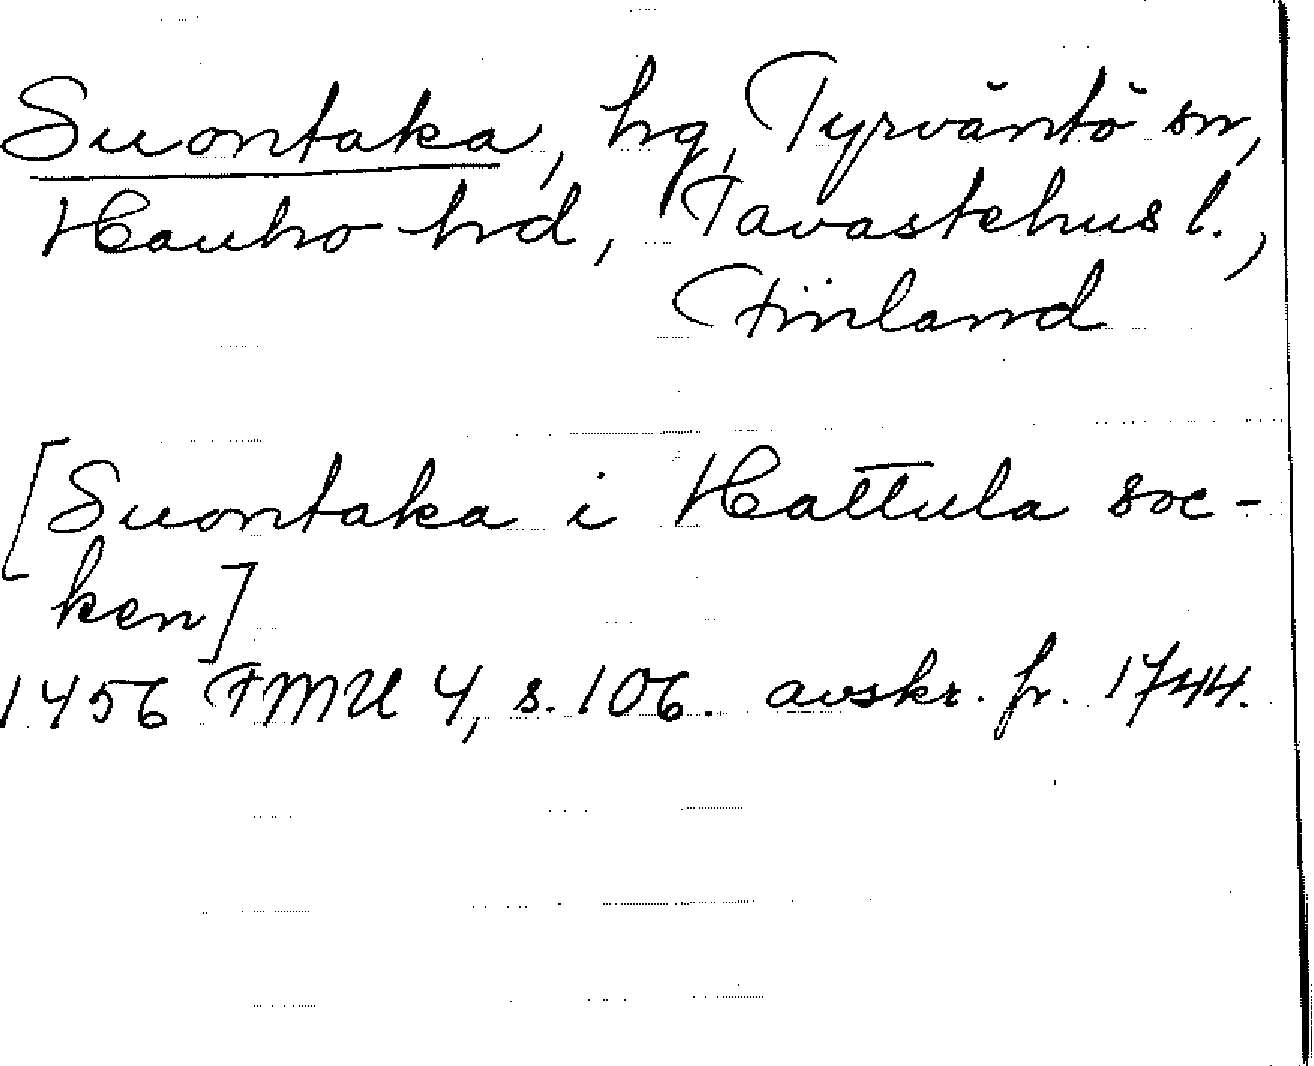 Suontaka, hg, Tyrväntö sn,
Hauho hd, Tavastehus l.,
Finland
[Suontaka i Hattula soc-
ken]
1456 FMU 4, s. 106. avskr. fr. 1744.